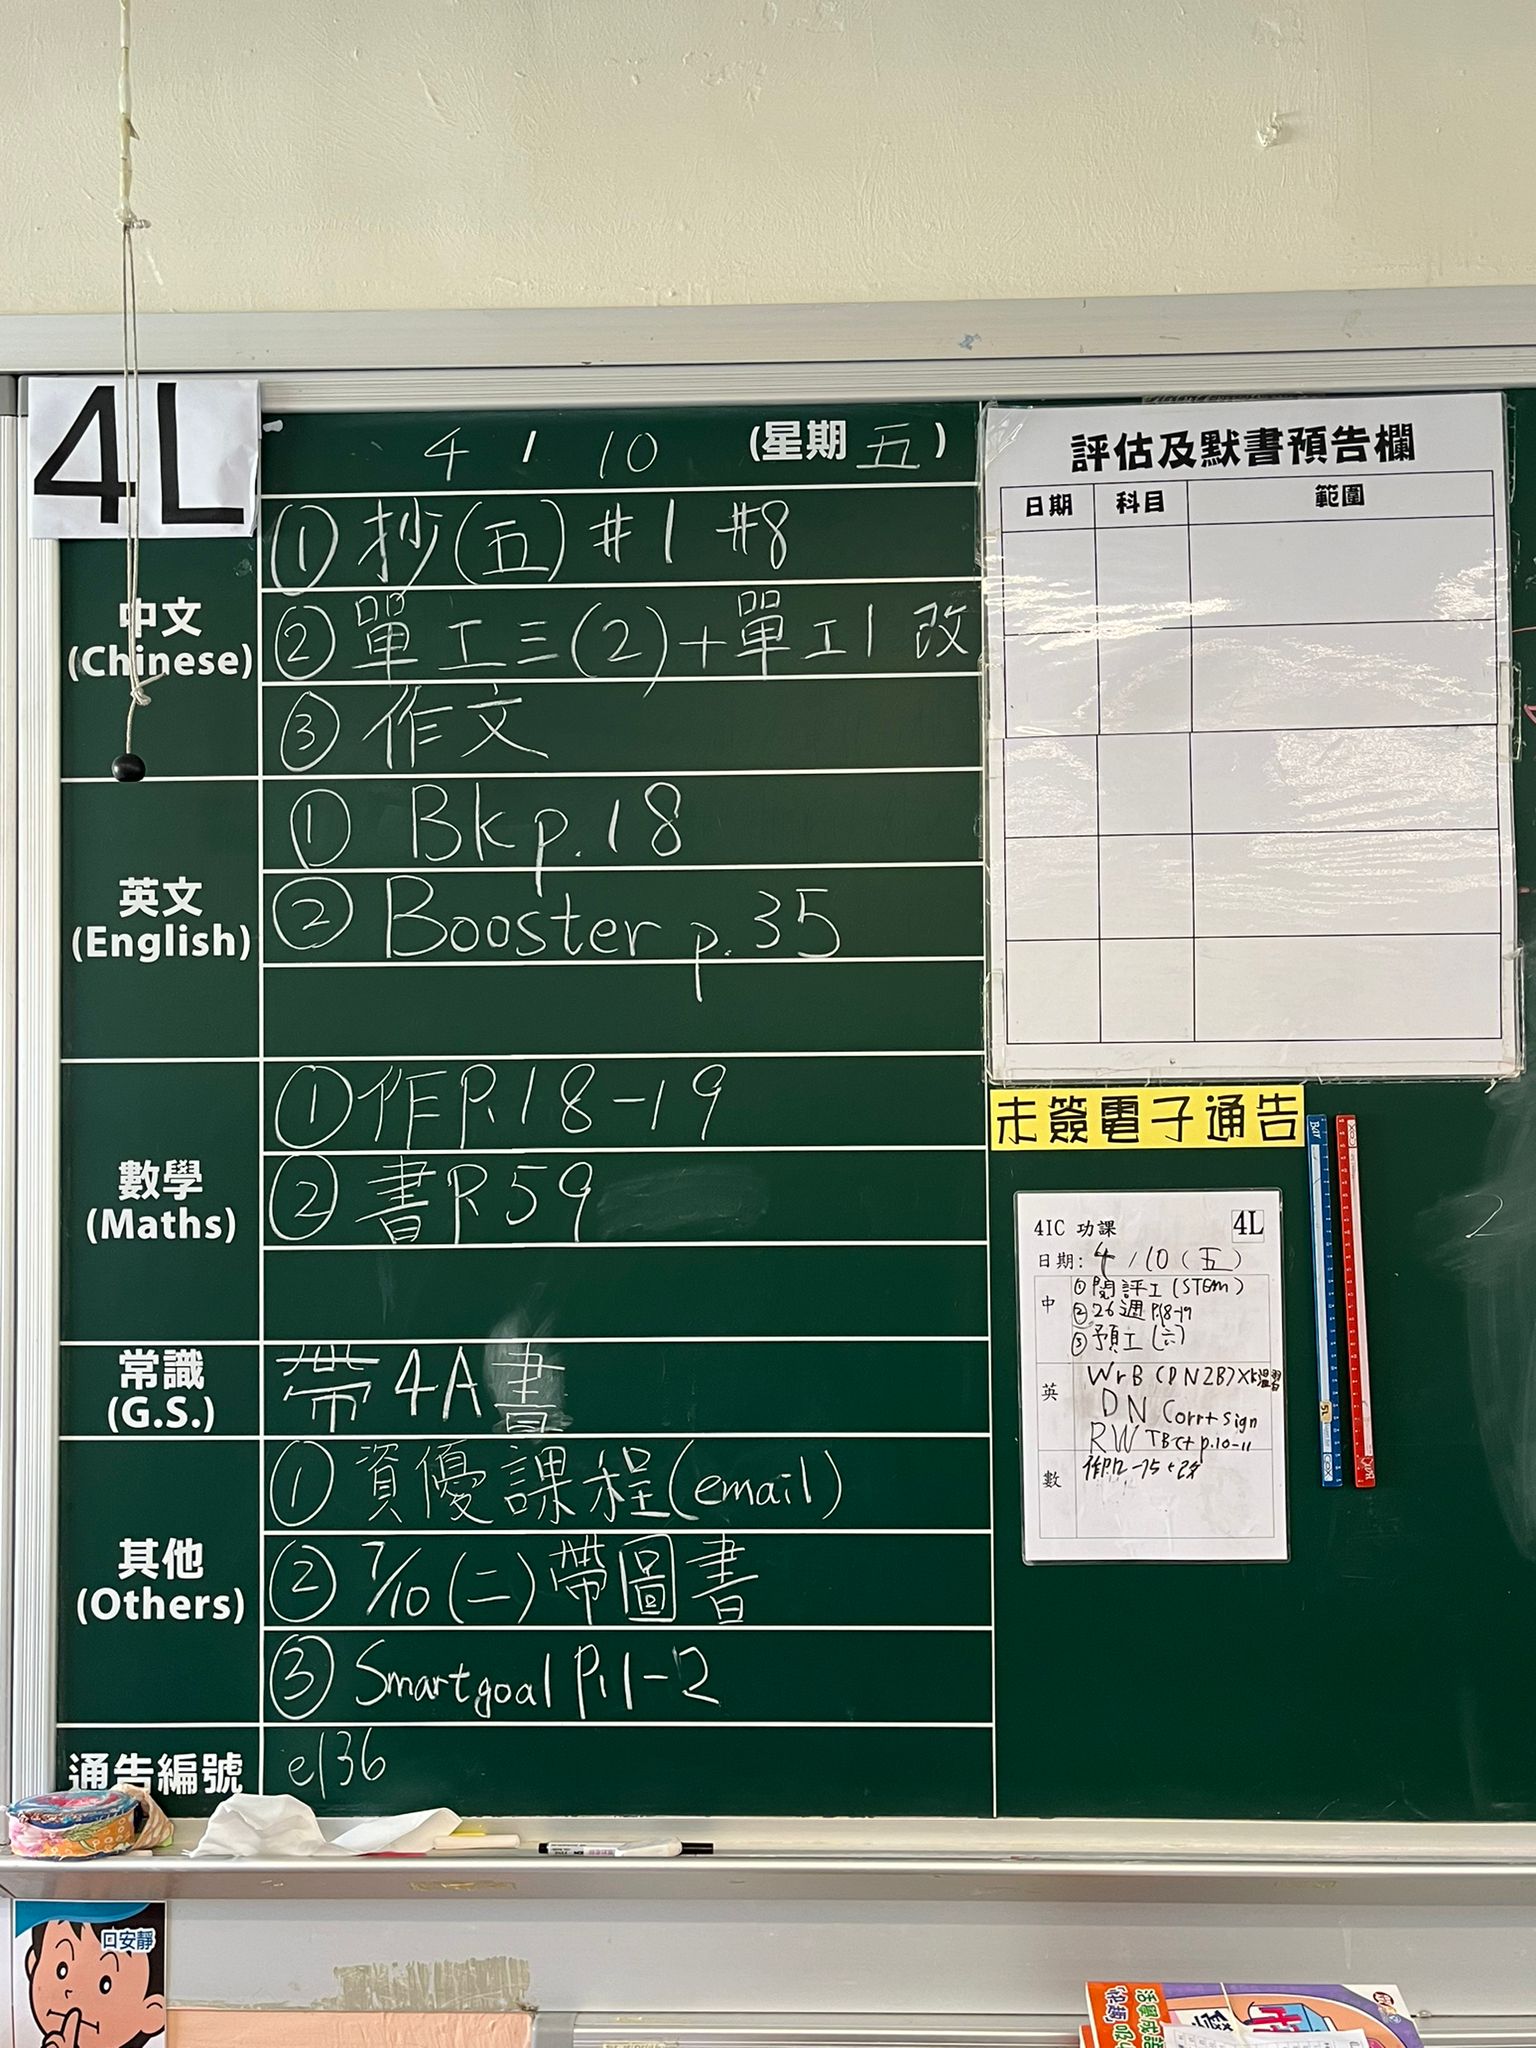 4L
4 / 10 (星期 五)
中文
(Chinese)
① 抄(五) #1 #8
② 單工三(2)+單工1 改
③ 作文
英文
(English)
① Bk p.18
② Booster p.35
數學
(Maths)
① 作P.18-19
② 書P.59
常識
(G.S.)
帶4A書
其他
(Others)
① 資優課程(email)
② 7/10(二)帶圖書
③ Smartgoal P.1-2
通告編號
e136
評估及默書預告欄
日期 科目 範圍
未簽電子通告
4IC 功課 4L
日期: 4 / 10 (五)
中
① 閱評工(STEM)
② 26週 P.18-19
③ 預工(六)
英
WrB (DN2B)
DN Corr+sign
RW TBC+ p.10-11
數
口安靜